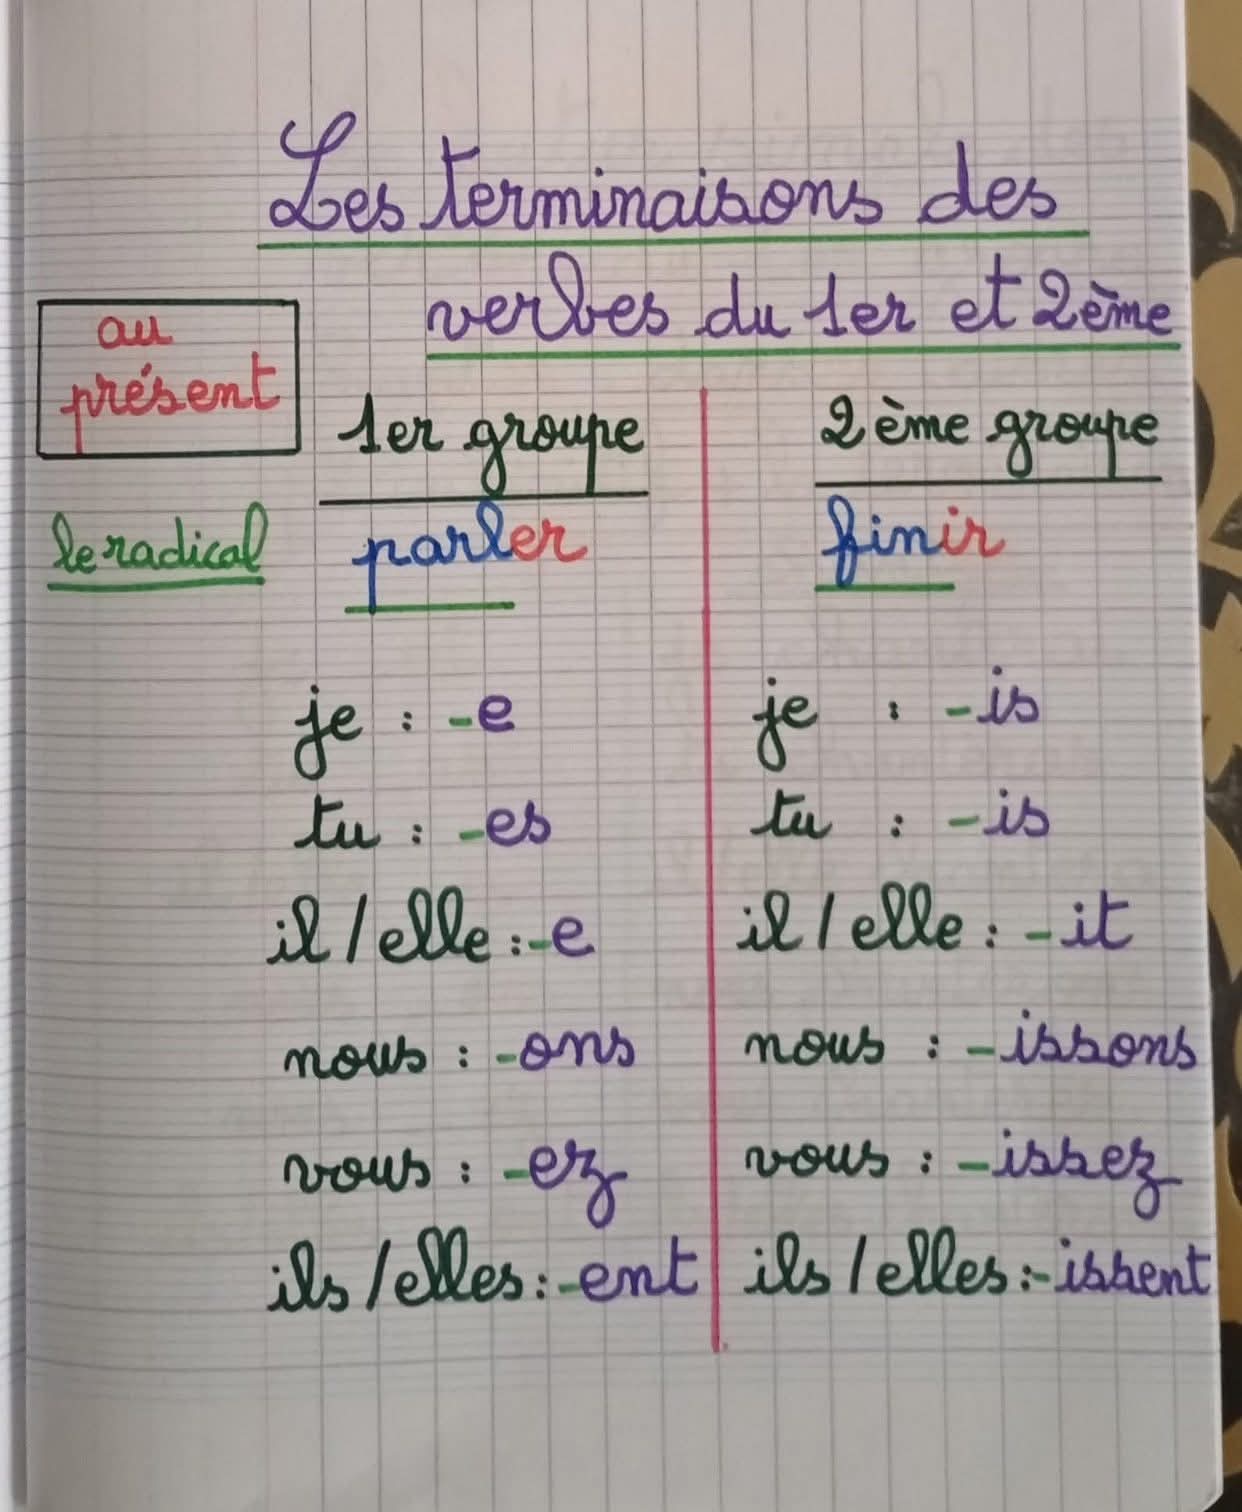 Les terminaisons des
verbes du 1er et 2ème
au
présent
1er groupe
2ème groupe
le radical
parler
finir
je : -e
je : -is
tu : -es
tu : -is
il / elle : -e
il / elle : -it
nous : -ons
nous : -issons
vous : -ez
vous : -issez
ils / elles : -ent
ils / elles : -issent